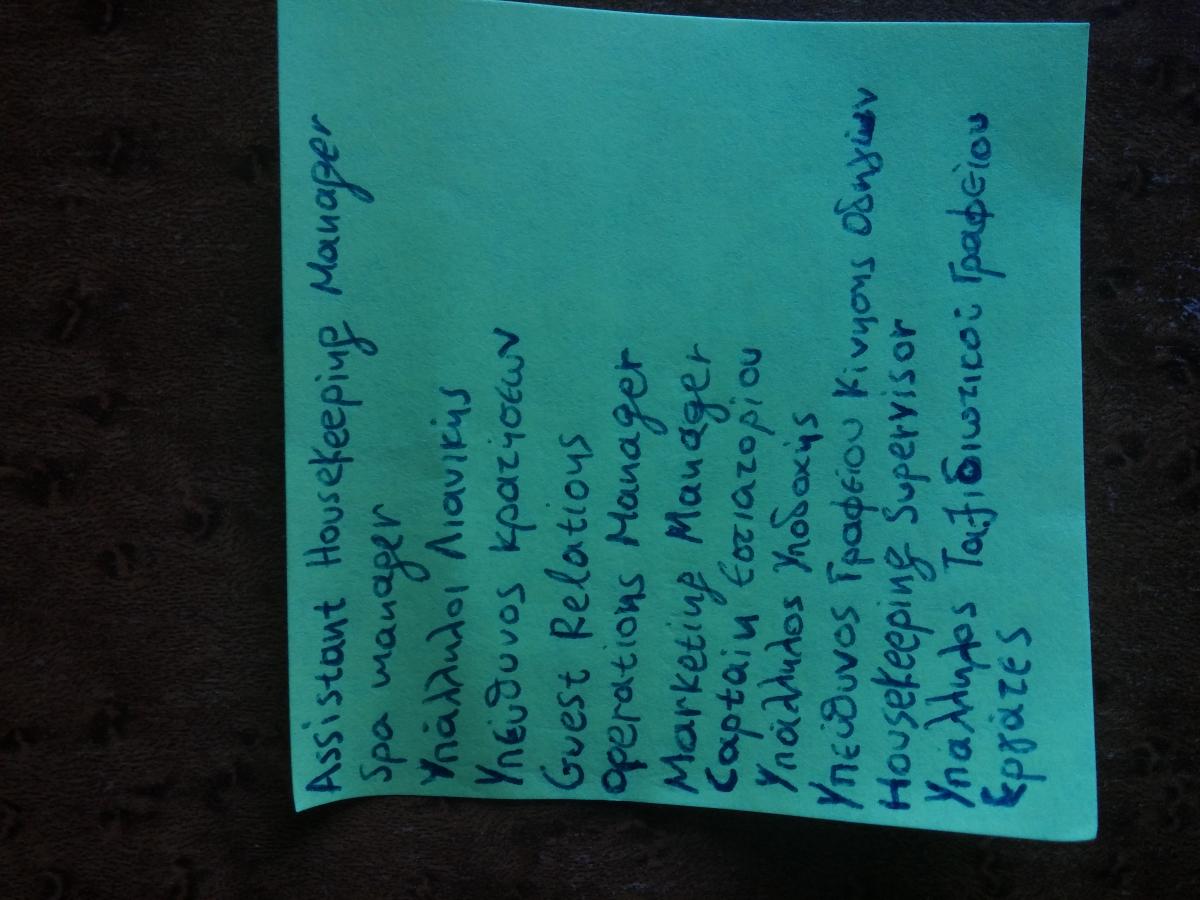 Assistant Housekeeping Manager
Spa manager
Υπάλληλοι Λιανικής
Υπεύθυνος κρατήσεων
Guest Relations
Operations Manager
Marketing Manager
Captain Εστιατορίου
Υπάλληλος Υποδοχής
Υπεύθυνος Γραφείου Κίνησης Οδηγών
Housekeeping Supervisor
Υπάλληλος Ταξιδιωτικού Γραφείου
Εργάτες